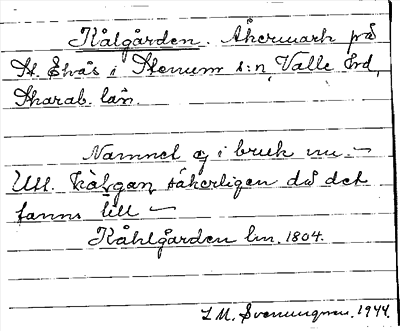 Kålgården. Åkermark på
St. Ekås i Stenum s:n, Valle hrd,
Skarab. län.
Namnet ej i bruk nu. –
Utt. kålgan, säkerligen då det
fanns till –
Kåhlgården lm. 1804.
L. M. Svenungsson. 1944.